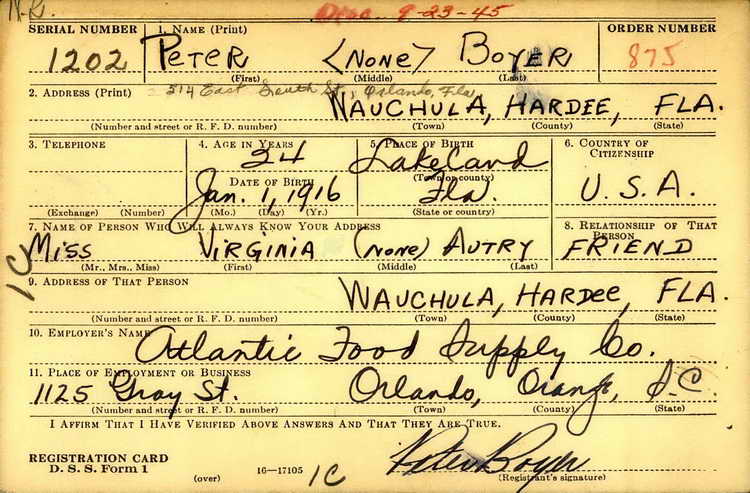 N.R. Disc. 9-23-45
SERIAL NUMBER 1. NAME (Print) ORDER NUMBER
1202 PETER (NONE) BOYER 875
(First) (Middle) (Last)
2. ADDRESS (Print) 514 East South St., Orlando, Fla
WAUCHULA, HARDEE, FLA.
(Number and street or R. F. D. number) (Town) (County) (State)
3. TELEPHONE 4. AGE IN YEARS 5. PLACE OF BIRTH 6. COUNTRY OF CITIZENSHIP
24 Lakeland
(Town or county)
DATE OF BIRTH
Jan. 1, 1916 Fla. U. S. A.
(Exchange) (Number) (Mo.) (Day) (Yr.) (State or country)
7. NAME OF PERSON WHO WILL ALWAYS KNOW YOUR ADDRESS 8. RELATIONSHIP OF THAT PERSON
MISS VIRGINIA (NONE) AUTRY FRIEND
(Mr., Mrs., Miss) (First) (Middle) (Last)
1C
9. ADDRESS OF THAT PERSON
WAUCHULA, HARDEE, FLA.
(Number and street or R. F. D. number) (Town) (County) (State)
10. EMPLOYER'S NAME
Atlantic Food Supply Co.
11. PLACE OF EMPLOYMENT OR BUSINESS
1125 Gray St. Orlando, Orange,
(Number and street or R. F. D. number) (Town) (County) (State)
I AFFIRM THAT I HAVE VERIFIED ABOVE ANSWERS AND THAT THEY ARE TRUE.
REGISTRATION CARD
D. S. S. Form 1 (over) 16—17105 1C Peter Boyer
(Registrant's signature)